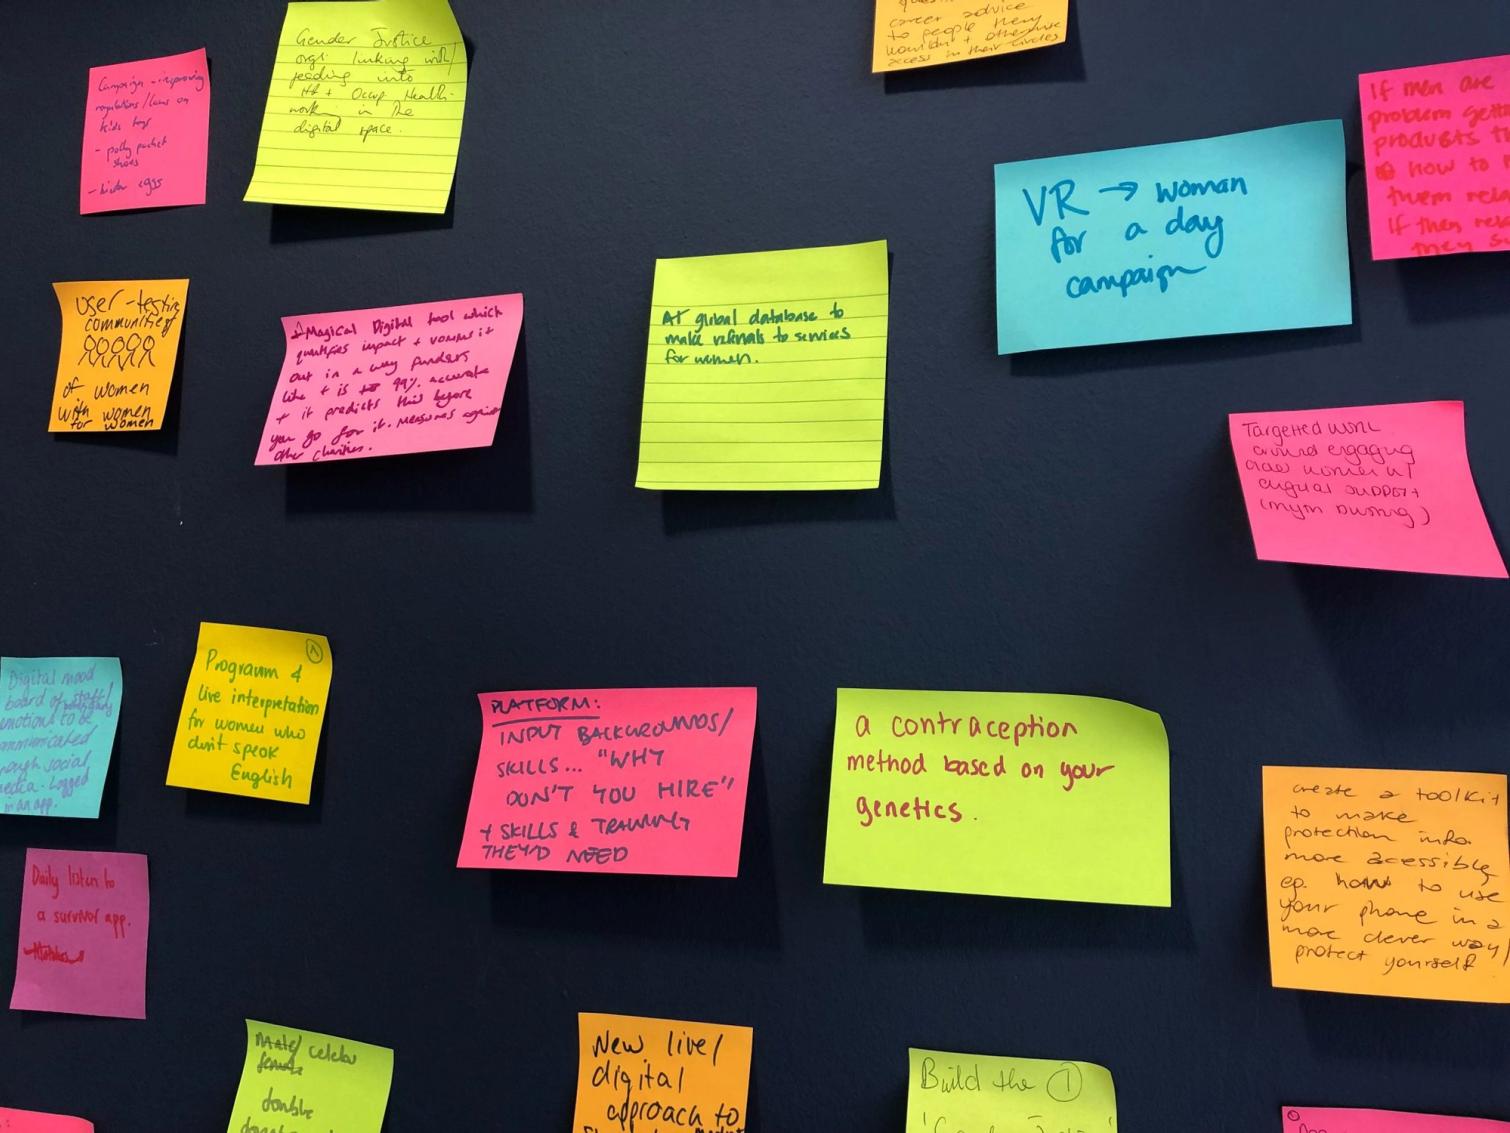 Campaign - improving
regulations/laws on
kids toys
- polly pocket
shoes
- kinder eggs
Gender Justice
orgs linking with/
feeding into
HR + Occup Health-
working in the
digital space.
career advice
to people they
wouldn't otherwise
access in their circles
VR → woman
for a day
campaign
If men are
problem
products
how to
them
If then
they
User-testing
communities
of women
with women
for women
Magical Digital tool which
quantifies impact + vomits it
out in a way funders
like + is 99% accurate
+ it predicts this before
you go for it. Measures against
other charities.
global database to
make referrals to services
for women.
Targetted work
around engaging
older women w/
digital support
(myth busting)
Digital mood
board of
emotions to be
communicated
through social
media. Logged
in an app.
Programm 4
live interpretation
for women who
don't speak
English
PLATFORM:
INPUT BACKGROUNDS/
SKILLS... "WHY
DON'T YOU HIRE"
+ SKILLS & TRAINING
THEY'D NEED
a contraception
method based on your
genetics.
create a toolkit
to make
protection info
more acessible
eg. how to use
your phone in a
more clever way/
protect yourself
Daily listen to
a survivor app.
Male/ celebs
female
double
New live/
digital
approach to
Build the 1